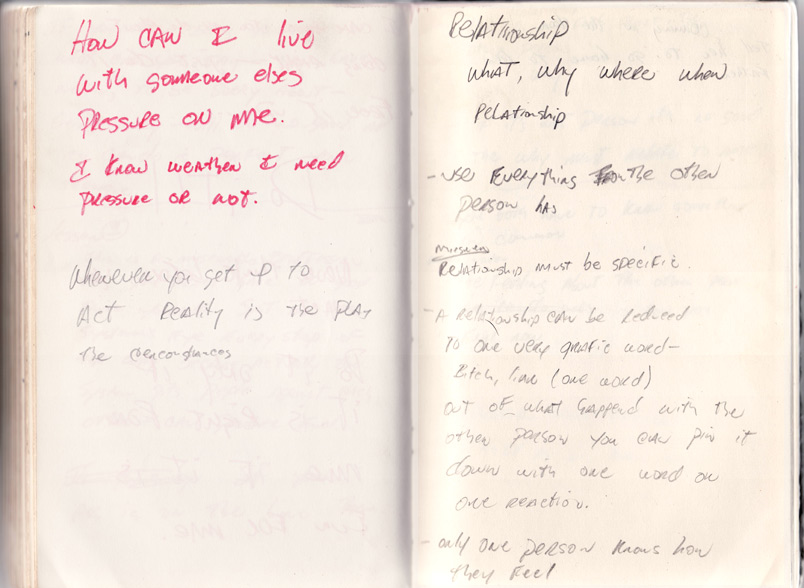 How can I live
with someone elses
pressure on me.
I know weather I need
pressure or not.
Whenever you get up to
Act Reality is the play
the
Relationship
What, Why where when
Relationship
- use Everything the other
person has
Relationship must be specific.
- A relationship can be reduced
to one very grafic word -
Bitch, liar (one word)
out of what happend with the
other person you can pin it
down with one word or
one reaction.
- only one person knows how
they feel